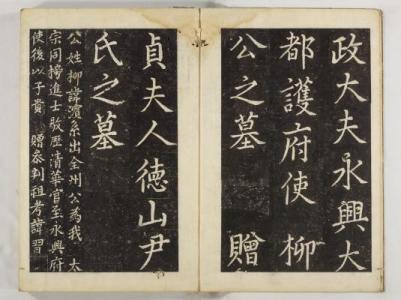 政大夫永興大
都護府使 柳
公之墓 贈
貞夫人德山尹
氏之墓
公姓柳諱濱系出全州公為我 太
宗同榜進士敭歷清華官至永興府
使後以子貴 贈參判祖考諱習